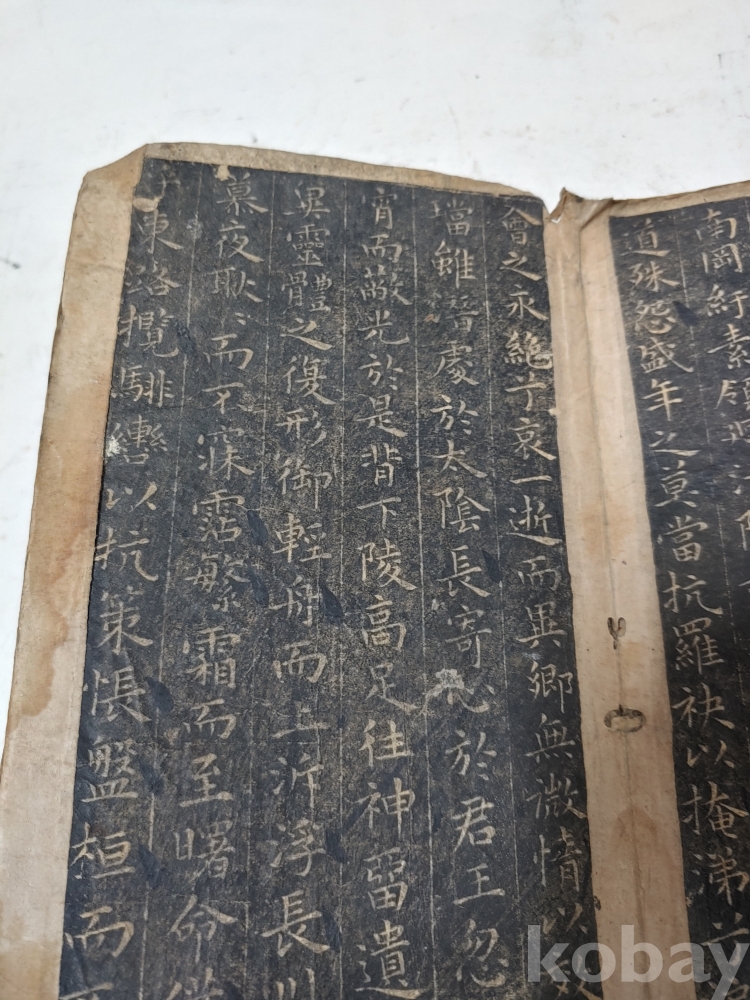 南岡紆素領迴清陽
道殊怨盛年之莫當抗羅袂以掩涕兮
會之永絶兮哀一逝而異鄉無微情以效
璫雖潛處於太陰長寄心於君王忽
宵而蔽光於是背下陵高足往神畱遺
冀靈體之復形御輕舟而上泝浮長川
慕夜耿〻而不寐霑繁霜而至曙命僕
東路攬騑轡以抗策悵盤桓而不
kobay